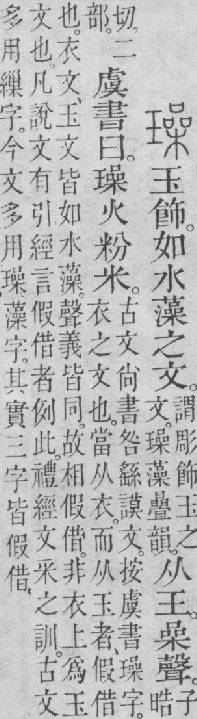 璪玉飾。如水藻之文。謂彫飾玉之文。璪藻曡韻。从王。喿聲。子晧
切。二部。虞書曰。璪火粉米。古文尚書咎繇謨文。按虞書璪字衣之文也。當从衣。而从玉者、假借
也。衣文、玉文皆如水藻。聲義皆同。故相假借。非衣上爲玉
文也。凡說文有引經言假借者例此。禮經文采之訓。古文
多用繅字。今文多用璪藻字。其實三字皆假借。